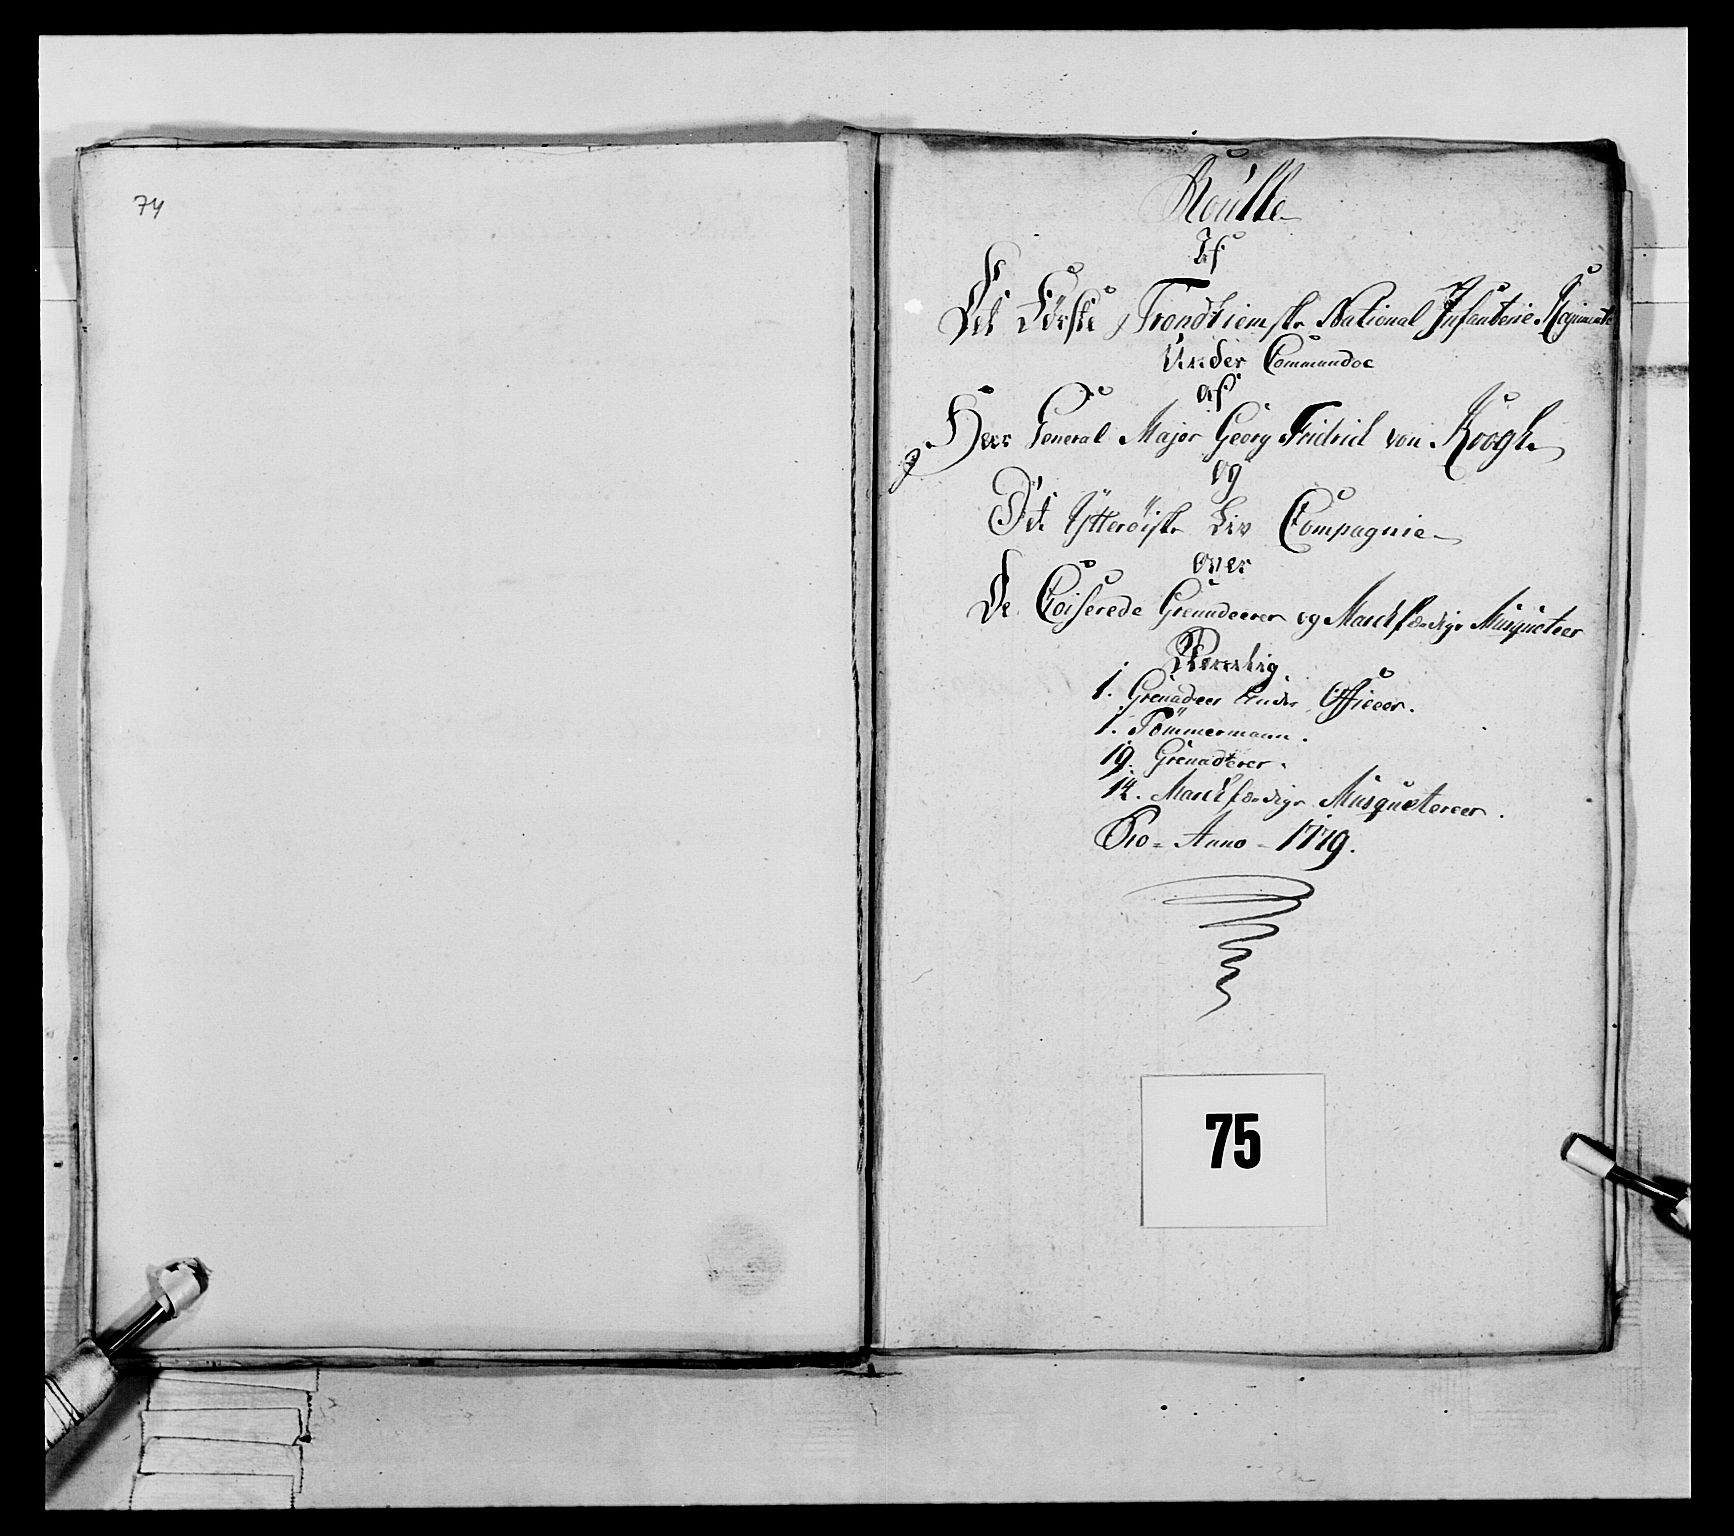 74
Roulle
Af
Det Förste Trondhiemske National Infanterie Regimente
Under Commandoe
af
Herr General Major Georg Fridrich von Krogh
og
Det Ytteröiske Liv Compagnie
over
De Coiserede Grenadeerer og Marchfærdige Musqueteer
Nemlig
1. Grenadeer Under Officeer.
1. Tömmermann.
19. Grenadeerer.
14. Marchfærdige Musqueteerer.
Pro = Anno - 1779.
75